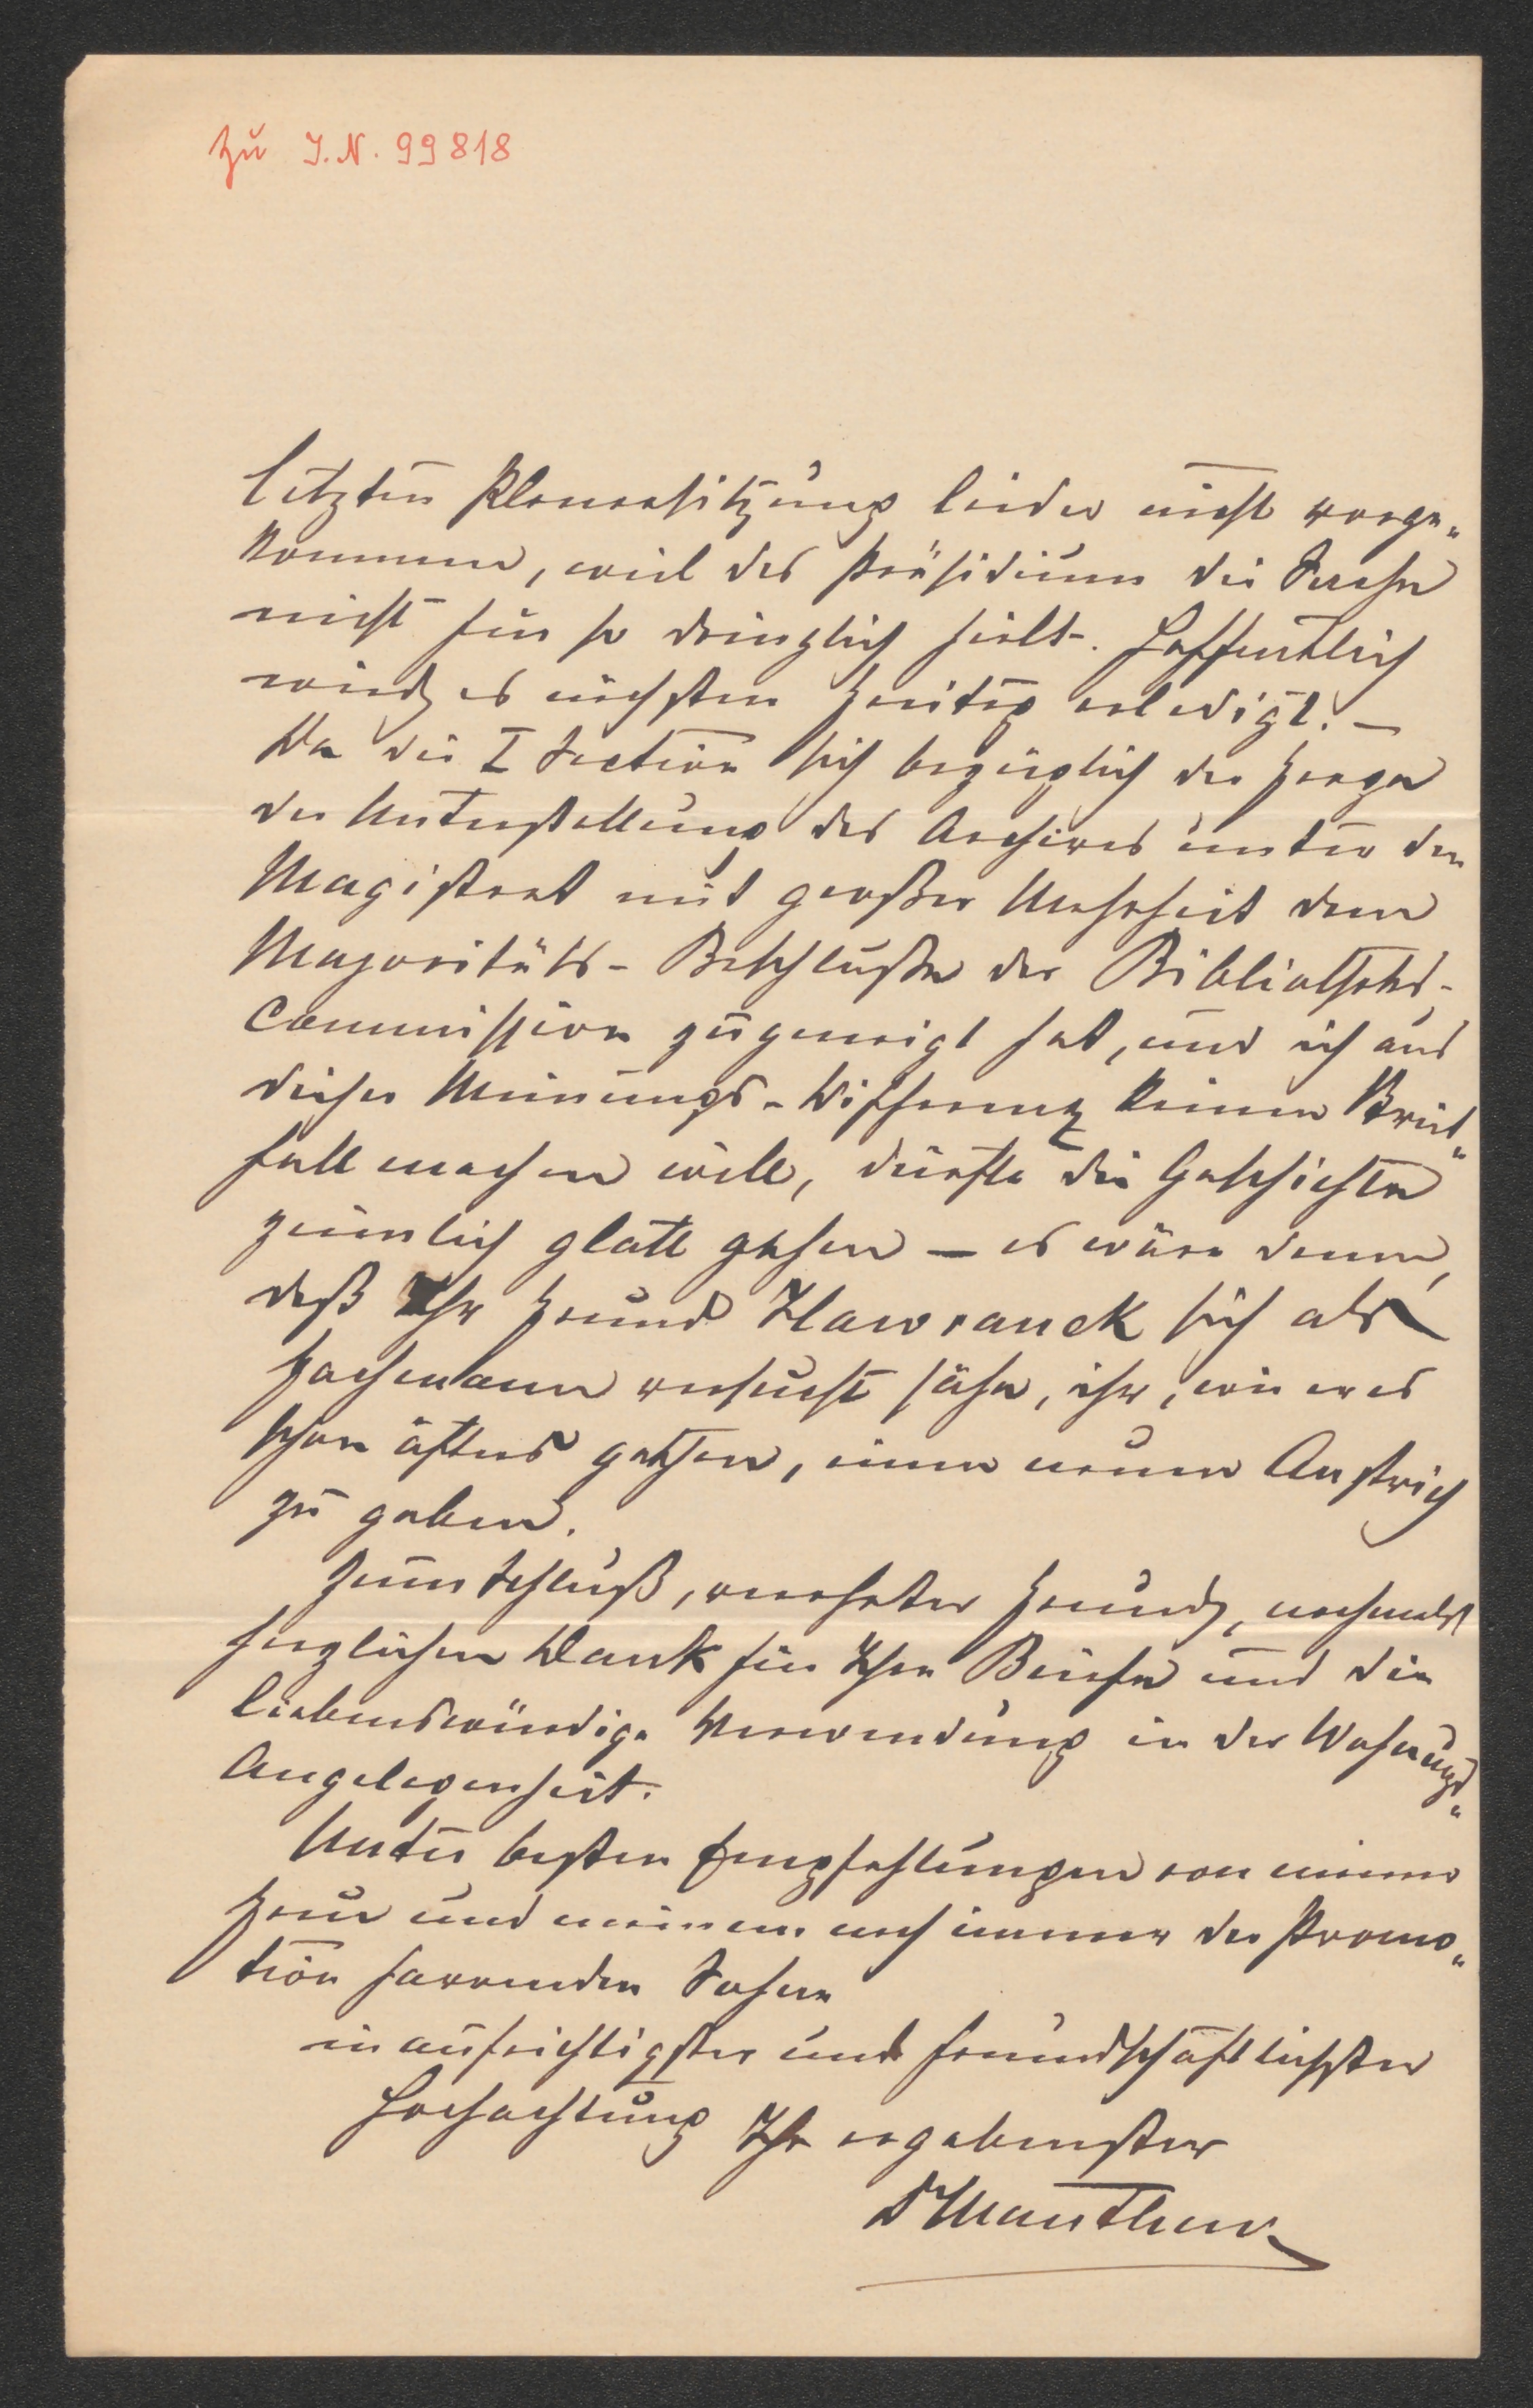 zu I.N. 99818
letzten Plenarsitzung leider nicht vorge„
kommen, weil das Präsidium die Sache
nicht für so dringlich hielt. Hoffentlich
wird es nächsten Freitag erledigt. –
Da die I Section sich bezüglich der Frage
der Unterstellung des Archives unter den
Magistrat mit großer Mehrheit dem
Majoritäts-Beschluße der Bibliotheks-
Commission zugeneigt hat, und ich aus
dieser Meinungs-Differenz keinen
fall machen will, dürfte die Geschichte
ziemlich glatt gehen – es wäre denn,
daß Ihr Freund Hawranek sich als
Fachmann versucht sähe, ihr, wie er es
schon öfters gethan, einen neuen Anstrich
zu geben.
Zum Schluß, verehrter Freund, nochmals
herzlichen Dank für Ihre Briefe und die
liebenswürdige Verwendung in der Wohnungs„
Angelegenheit.
Unter besten Empfehlungen von meiner
Frau und meinem noch immer der Promo„
tion harrenden Sohne
in aufrichtigster und freundschaftlichster
Hochachtung Ihr ergebenster